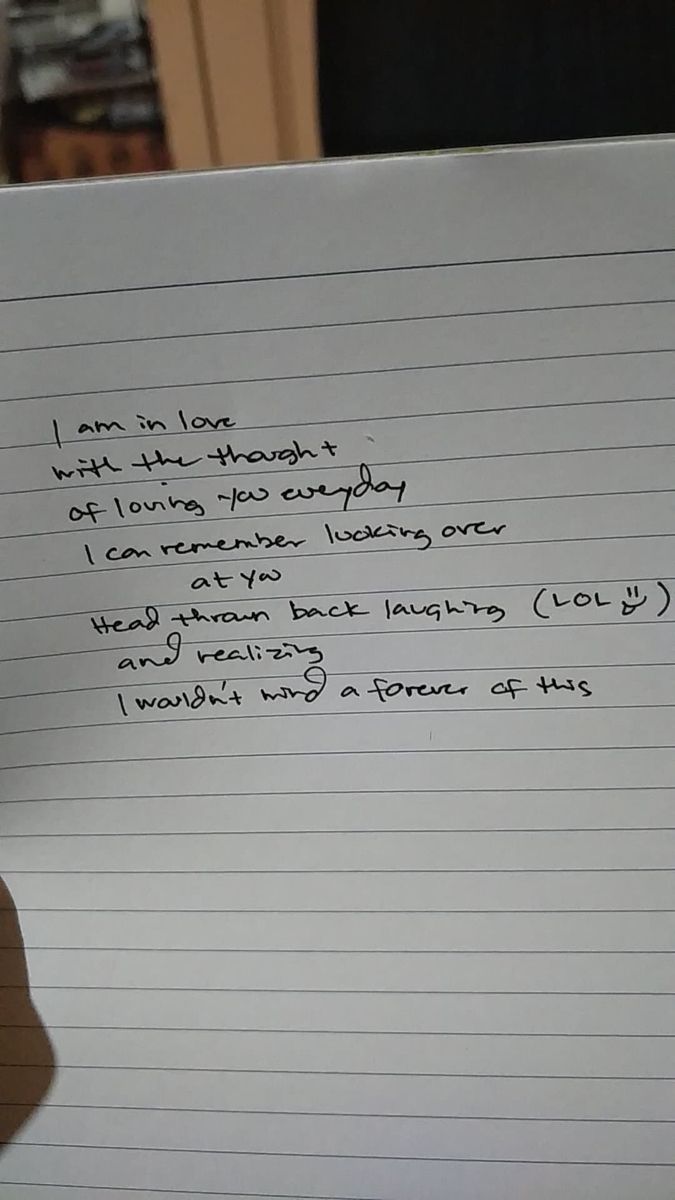 I am in love
with the thought
of loving you everyday
I can remember looking over
at you
Head thrown back laughing (LOL
and realizing
I wouldn't mind a forever of this